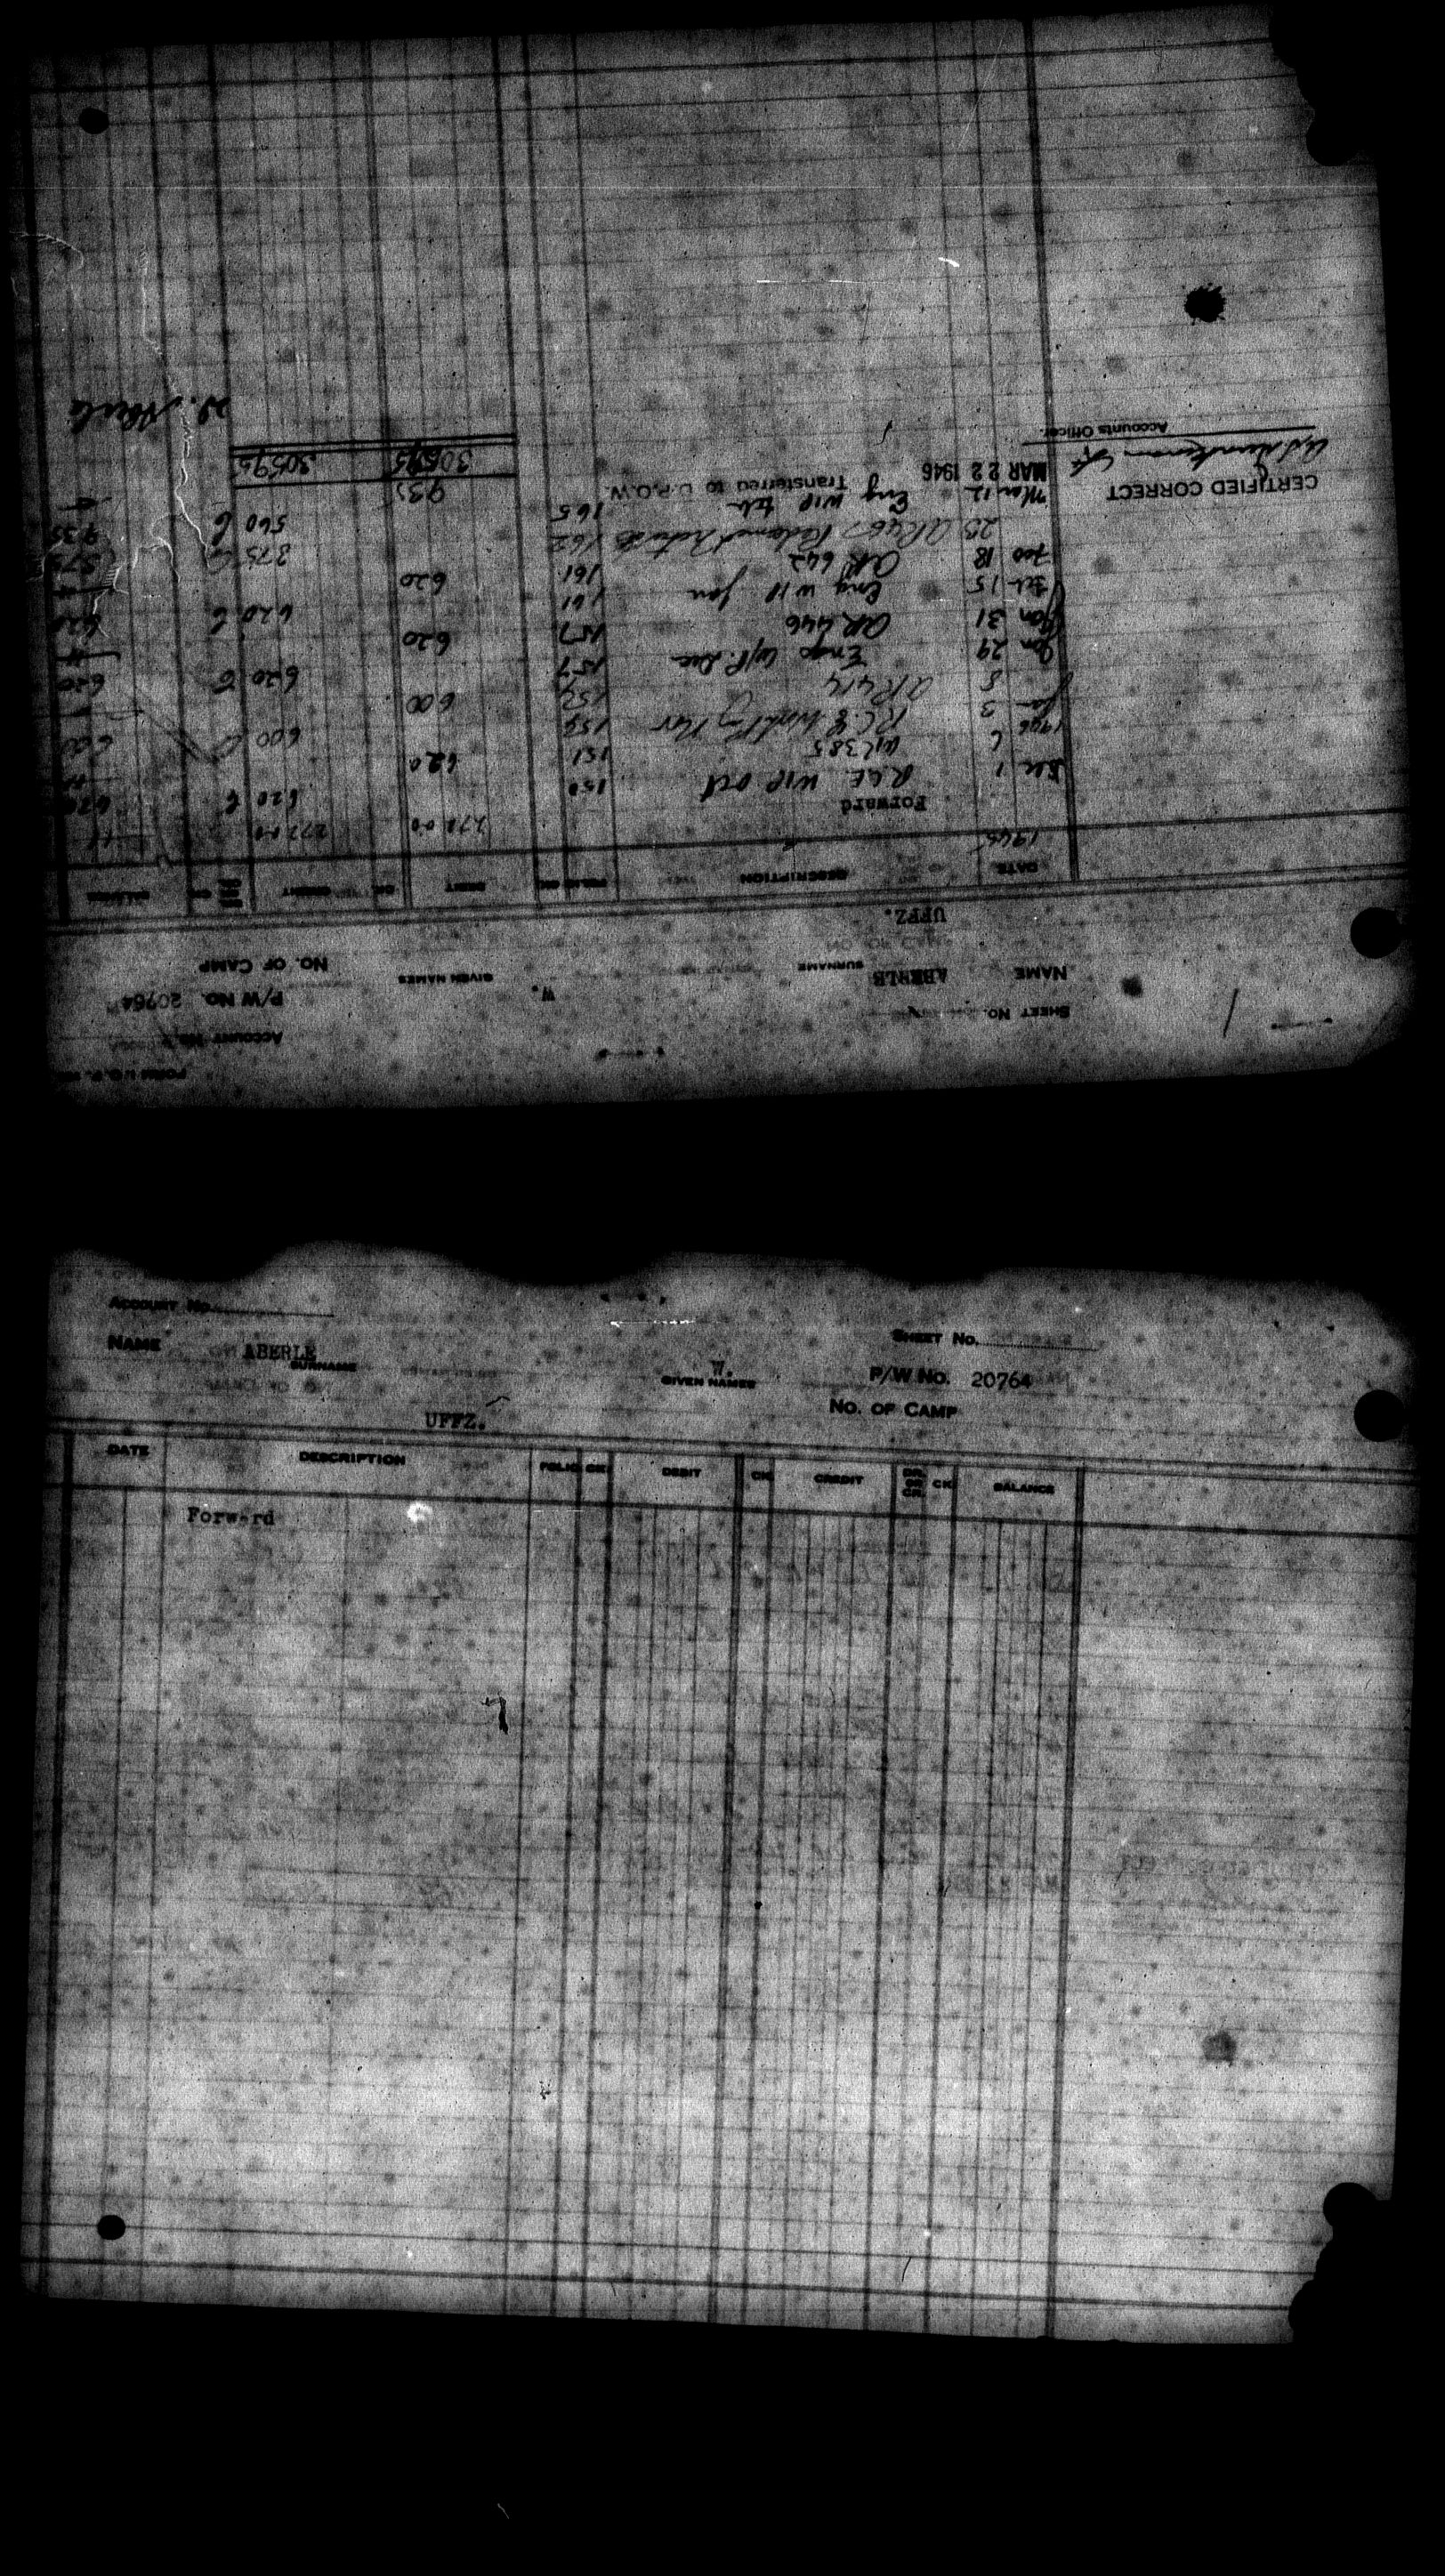 ACCOUNT NO.
SHEET NO.
P/W NO. 20764
NAME ABERLE W.
SURNAME GIVEN NAMES
NO. OF CAMP
UFFZ.
DATE DESCRIPTION FOLIO CK. DEBIT CK. CREDIT DR. OR CR. CK. BALANCE
1945
Forward 272 00 272 00
Dec 1 R.C.E. W/P Oct 150 6 20 6 20
6 AR 385 151 6 20
1946
Jan 3 R.C.E. Work Nov 154 6 00 6 00
8 AR 414 6 00
Jan 29 Engs W/P. Dec 157 6 20 6 20
Jan 31 AR 446 157 6 20
Feb 15 Eng W/P Jan 161 6 20 6 20
Feb 18 AR 642 161 6 20
25 AR 467 Redeemed 162 3 75 3 75
Mar 12 Eng W/P Feb 165 5 60 9 35
MAR 22 1946 Transferred to D.P.O.W. 9 35
305 95 305 95
W. Aberle
CERTIFIED CORRECT
Accounts Officer.
ACCOUNT NO.
NAME ABERLE W.
SURNAME GIVEN NAMES
SHEET NO.
P/W NO. 20764
NO. OF CAMP
UFFZ.
DATE DESCRIPTION FOLIO CK. DEBIT CK. CREDIT DR. OR CR. CK. BALANCE
Forward